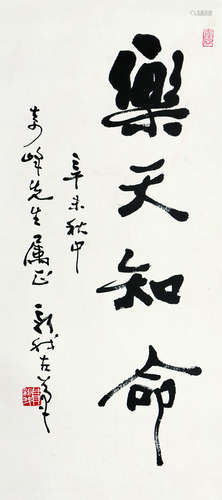 樂天知命
辛未秋中
寿峰先生属正